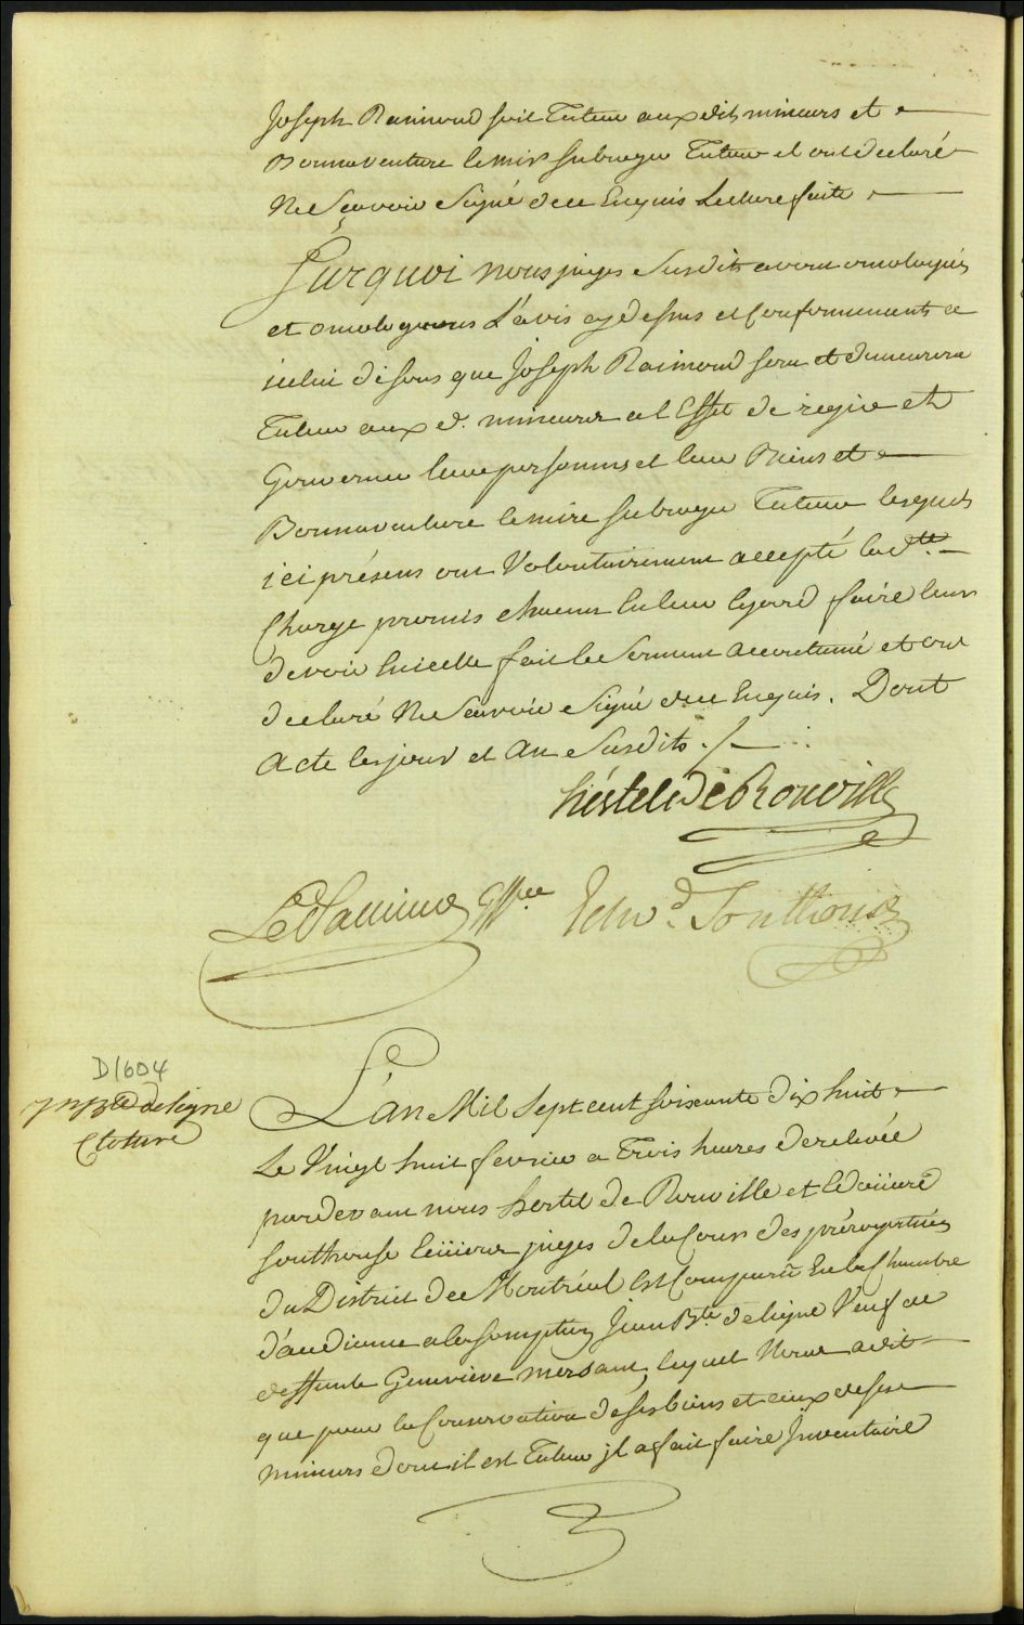 Joseph Raimond soit Tuteur aux dits mineurs et
Bonnaventure lemire subrogué Tuteur et ont declaré
Ne Scavoir Signé de ce Enquis Lecture faite
Surquoi nous juges Susdits avons omologués
et omologuons L'avis cy dessus et Conformement a
icelui disons que Joseph Raimond sera et demeurera
Tuteur aux d. mineurs a l'Effet de regir et
Gouverner leurs personnes et leur Biens et
Bonnaventure lemire subrogué Tuteur lesquels
ici présens ont Volontairement accepté lad.te
Charge promis chacun En leur Egard faire leurs
devoir En icelle fait le Serment accoutumé et ont
declaré Ne Scavoir Signé de ce Enquis. Dont
Acte les jour et An Susdits ./.
hértel De Rouville
Edw.d Southouse
D1604
J n B.te deligne
Cloture
L'an Mil Sept cent soixante dix huit
Le Vingt huit fevrier a Trois heures de relevée
pardevant nous hertel de Rouville et Edoüard
Southouse Ecüiers juges de la Cour des prérogatives
du District de Montréal Est Comparu En la Chambre
d'audience a les Jean B.te deligne Veuf de
deffunte Geneviève mersant, lequel Nous a dit
que pour la Conservation de ses biens et ceux de ses
mineurs dont il est Tuteur il a fait faire Inventaire